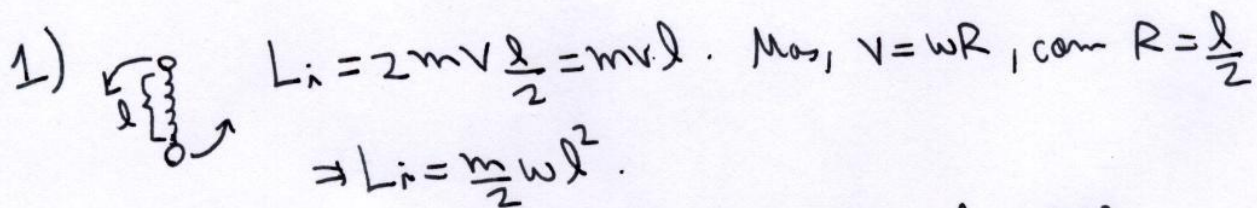 1) l L_i = 2mv l/2 = mv.l. Mas, v = ωR, com R = l/2
⇒ L_i = m/2 ωl².